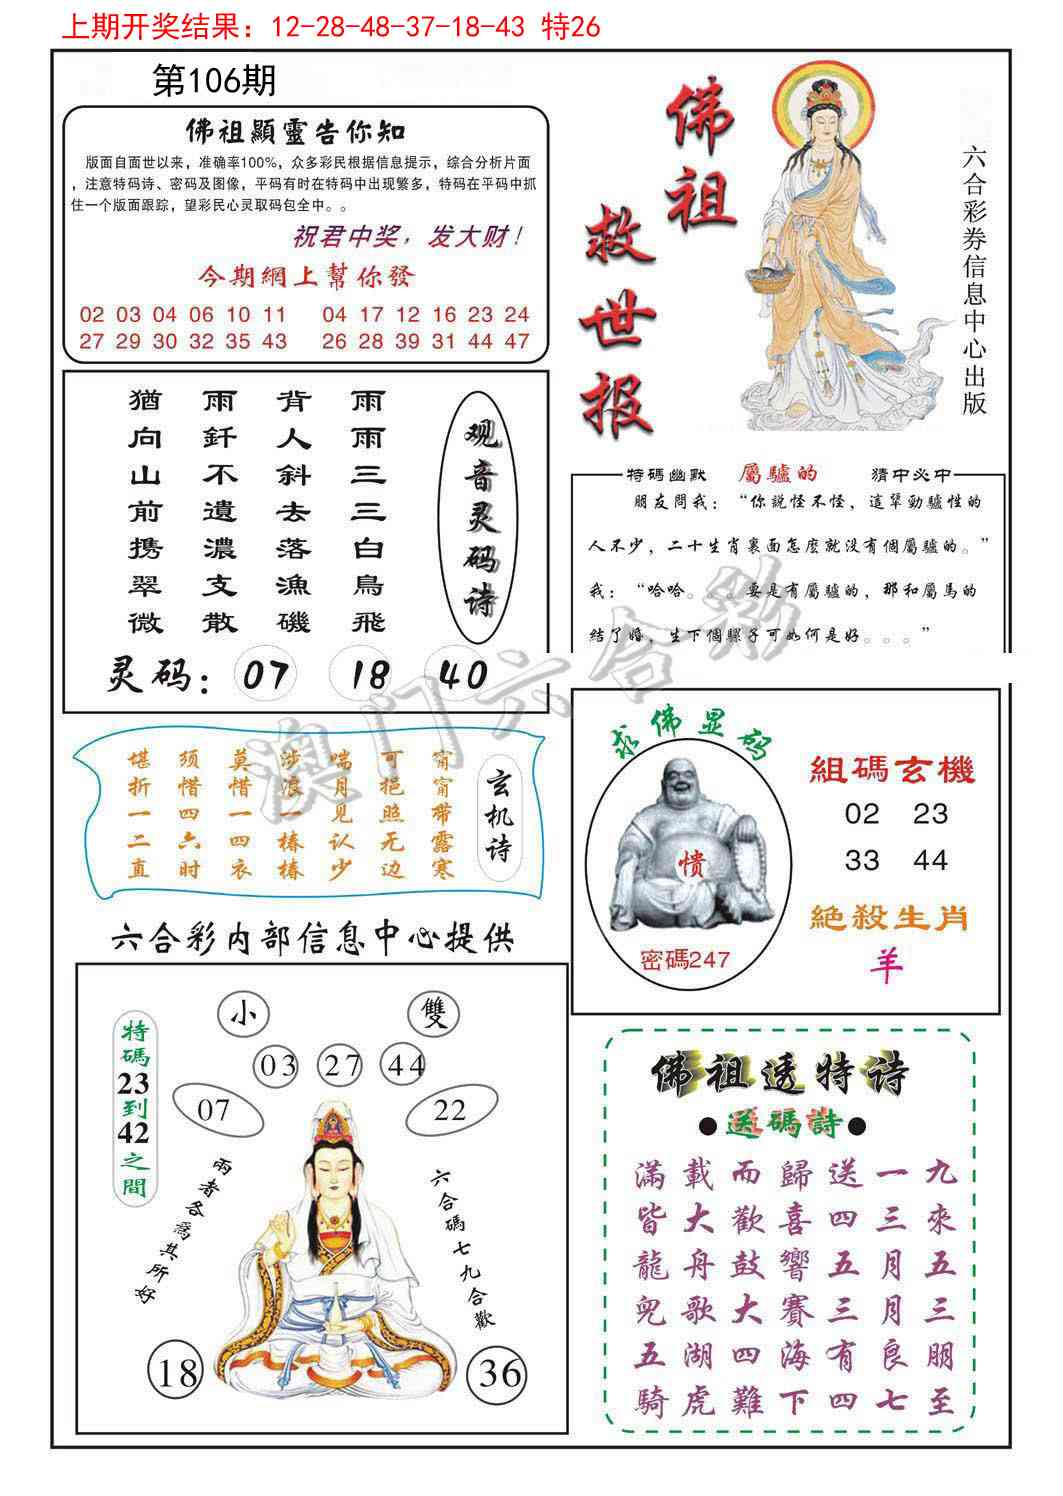 上期开奖结果：12-28-48-37-18-43 特26
第106期
佛祖顯靈告你知
版面自面世以来，准确率100%，众多彩民根据信息提示，综合分析片面
，注意特码诗、密码及图像，平码有时在特码中出现繁多，特码在平码中抓
住一个版面跟踪，望彩民心灵取码包全中。。
祝君中奖，发大财！
今期網上幫你發
02 03 04 06 10 11 04 17 12 16 23 24
27 29 30 32 35 43 26 28 39 31 44 47
佛祖
救世报
六合彩券信息中心出版
观音灵码诗
雨雨三三白鳥飛
背人斜去落漁磯
雨釬不遺濃支散
猶向山前携翠微
灵码：07 18 40
特碼幽默 屬驢的 猜中必中
朋友問我：“你說怪不怪，這輩勁驢性的
人不少，二十生肖裏面怎麼就没有個屬驢的。”
我：“哈哈。。。要是有屬驢的，那和屬馬的
结了婚，生下個騾子可如何是好。。。”
澳门六合彩
玄机诗
甯甯带露寒
可挹照无边
喘月见认少
涉浪一椿椿
莫惜一四衣
须惜四六时
堪折一二直
求佛显码
愦
密碼247
組碼玄機
02 23
33 44
絕殺生肖
羊
六合彩内部信息中心提供
小 雙
03 27 44
07 22
特碼23到42之間
兩者各爲其所好
六合碼七九合歡
18 36
佛祖透特诗
●送碼詩●
滿載而歸送一九
皆大歡喜四三來
龍舟鼓響五月五
兜歌大賽三月三
五湖四海有良朋
騎虎難下四七至